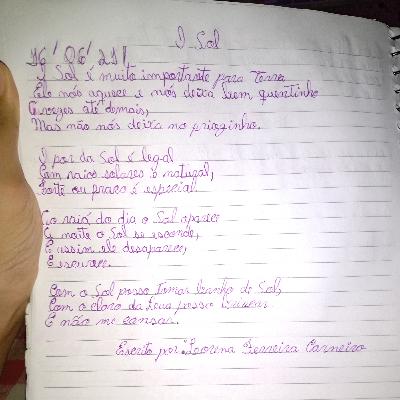 O Sol
16/06/21
O Sol é muito importante para terra
Ele nós aquece e nós deixa bem quentinho
as vezes até demais,
Mas não nós deixa no friozinho.
O por do Sol é legal
Com raios solares é natural,
Forte ou fraco é especial.
Ao raiá do dia o Sol aparece
A noite o Sol se esconde,
E assim ele desaparece,
E escurece.
Com o Sol posso tomar banho de Sol,
Com o claro da Lua posso
E não me cansar.
Escrito por: Lorena Ferreira Carneiro